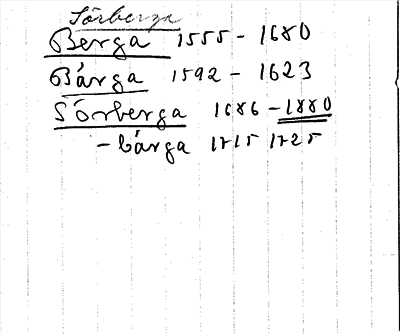 Sörberga
Berga 1555 - 1680
Bårga 1592 - 1623
Sörberga 1686 - 1880
- bårga 1715 1725